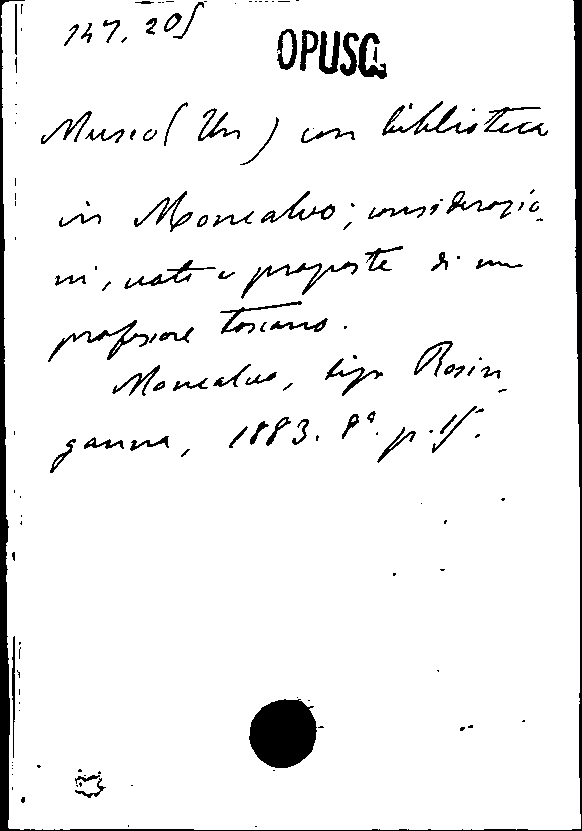 147.205
OPUSC.
Museo (Un) con biblioteca
in Moncalvo; considerazio-
ni, voti e proposte di un
professore toscano.
Moncalvo, tip. Rosin-
ganna, 1883. 8° p. 15.